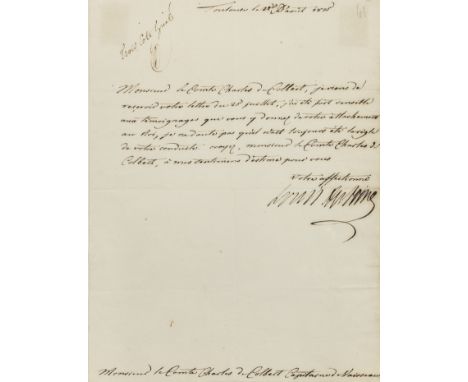 Toulouse le
Monsieur le Comte Charles de Colbert, je viens de
recevoir votre lettre du 28 juillet, j'ai été fort sensible
aux témoignages que vous y donnez de votre attachement
au Roi, je ne doute pas qu'il n'ait toujours été la règle
de votre conduite croyez, monsieur le Comte Charles de
Colbert, à mes sentimens d'estime pour vous
votre affectionné
Louis Antoine
Monsieur le Comte Charles de Colbert Capitaine de Vaisseau